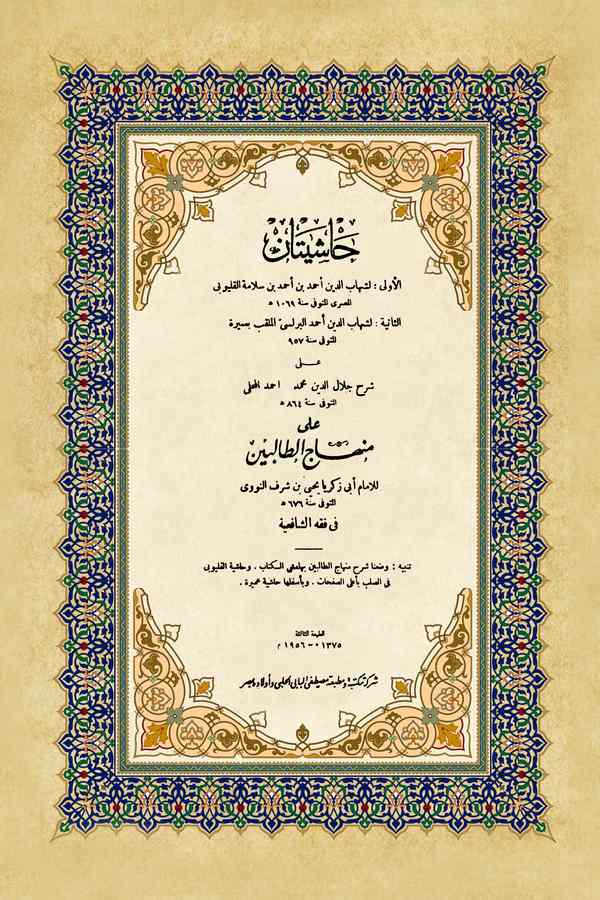 حاشيتان
الأولى : لشهاب الدين أحمد بن أحمد بن سلامة القليوبى
المصرى المتوفى سنة ١٠٦٩ هـ
الثانية : لشهاب الدين أحمد البرلسىّ الملقب بعميرة
المتوفى سنة ٩٥٧
عــلى
شرح جلال الدين محمد احمد المحلى
المتوفى سنة ٨٦٤ هـ
على
منهاج الطالبين
للامام أبى زكريا يحيى بن شرف النووى
المتوفى سنة ٦٧٦ هـ
فى فقه الشافعية
تنبيه : وضعنا شرح منهاج الطالبين بهامش الكتاب . وحاشية القليوبى
فى الصلب بأعلى الصفحات . وبأسفلها حاشية عميرة .
الطبعة الثالثة
١٣٧٥ هـ - ١٩٥٦ م
شركة مكتبة ومطبعة مصطفى البابى الحلبى وأولاده بمصر